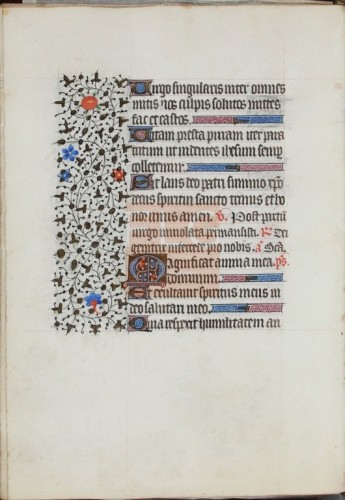 Virgo singularis inter omnes
mitis nos culpis solutos mittes
fac et castos.
Vitam presta puram iter para
tutum ut videntes ihesum semp
colletemur.
Sit laus deo patri summo xpo
decus spiritui sancto tribus et ho
nor unus amen. V. Post partum
virgo inviolata permansisti. R. Dei
genitrix intercede pro nobis. a. Sca
Magnificat anima mea. ps.
dominum.
Et exultavit spiritus meus in
deo salutari meo.
Quia respexit humilitatem an